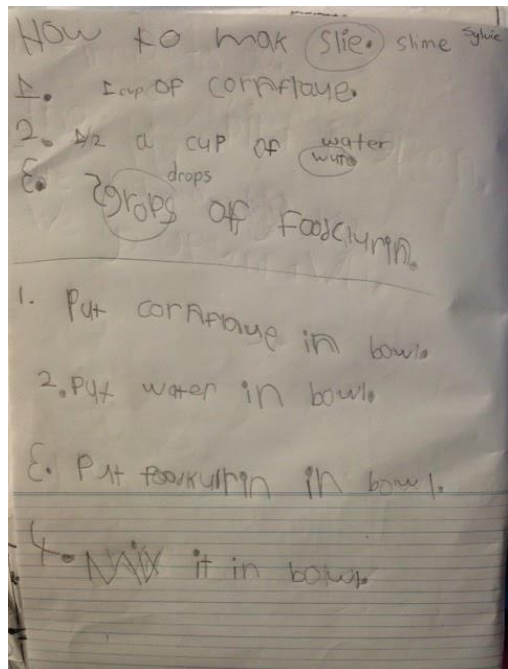 How to mak slie. slime Sylvie
1. 1 cup of cornflaue.
2. 1/2 a cup of wuto water
3. 2 grops drops of foodclurin.
1. Put cornflaue in bowl.
2. Put water in bowl.
3. Put in bowl.
4. Mix it in bowl.